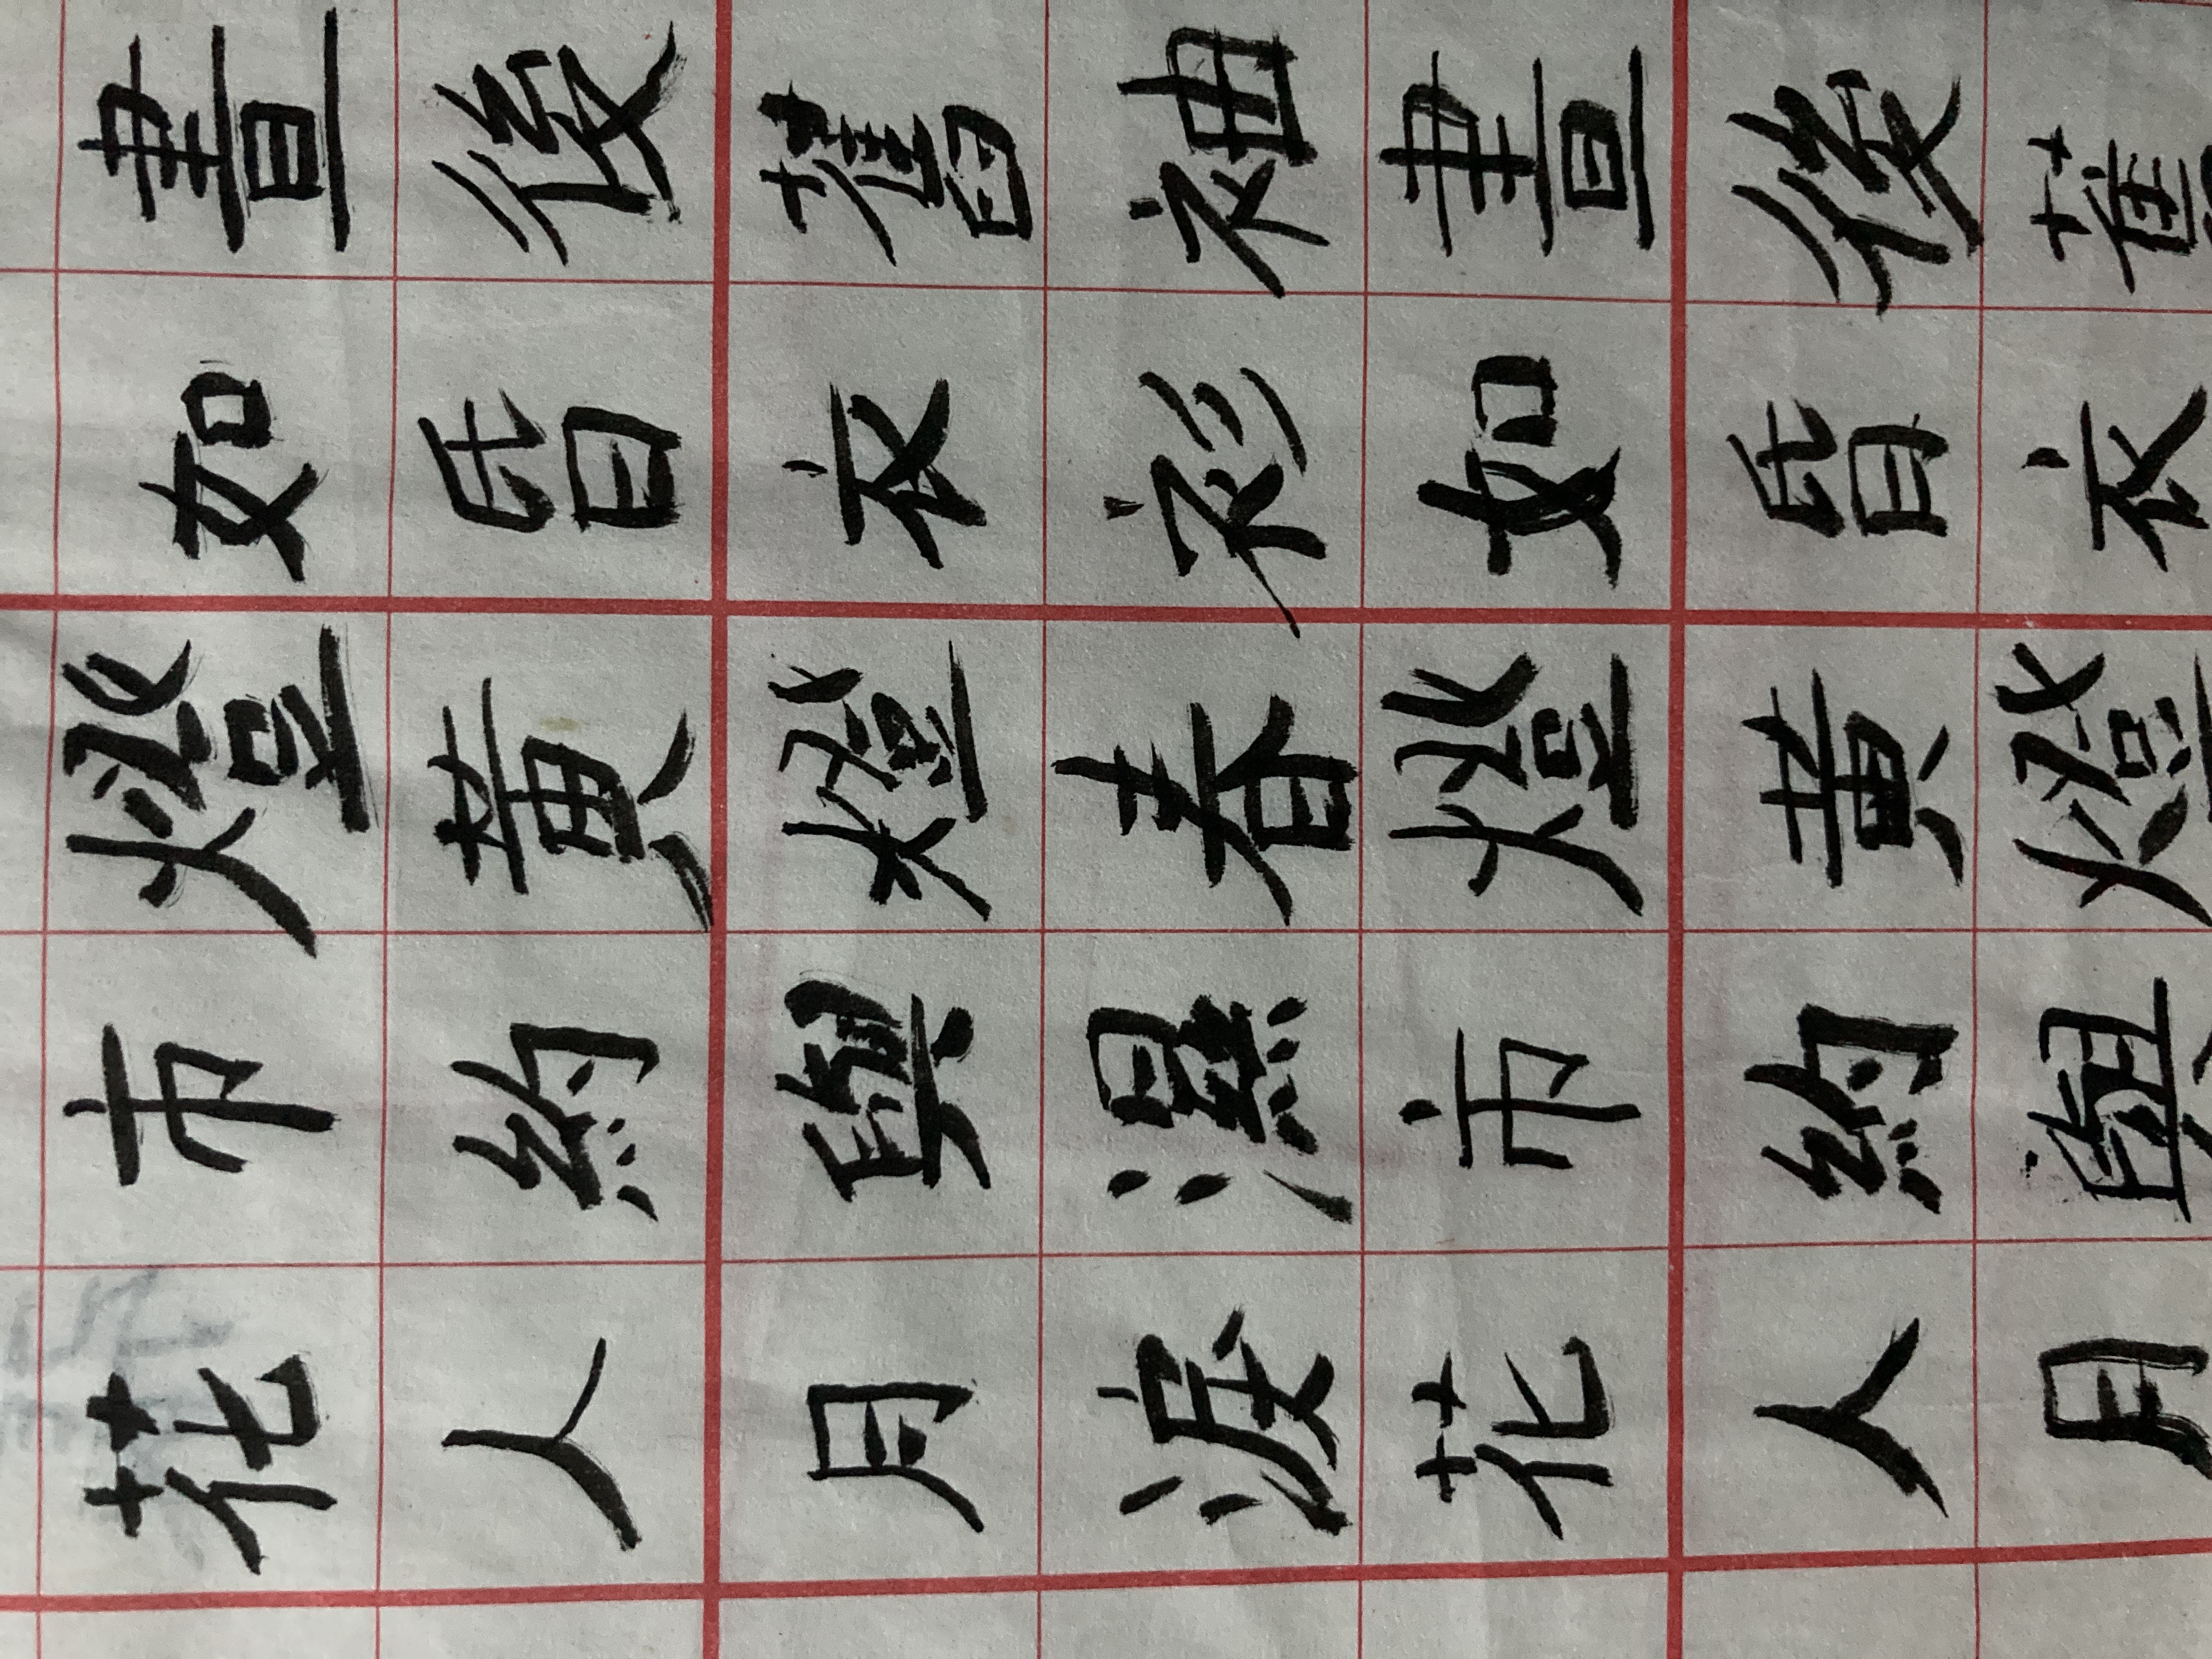 花市燈如晝
人約黄昏後
月與燈衣舊
淚濕春衫袖
花市燈如晝
人約黄昏後
月與燈衣舊